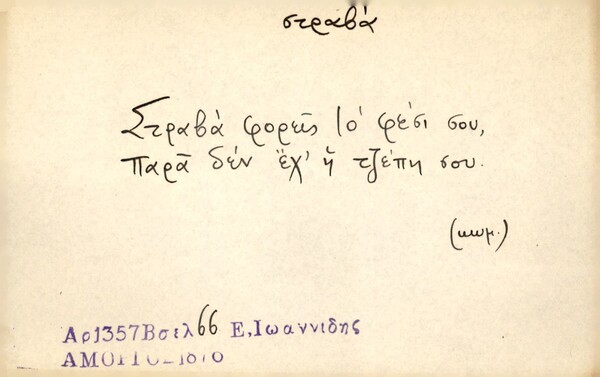 στραβὰ
Στραβὰ φορεῖς το' φέσι σου,
παρᾶ δὲν ἔχ' ἡ τζέπη σου.
(κωμ.)
Αρ1357Βσελ66 Ε,Ιωαννιδης
ΑΜΟΡΓΟΣ1876